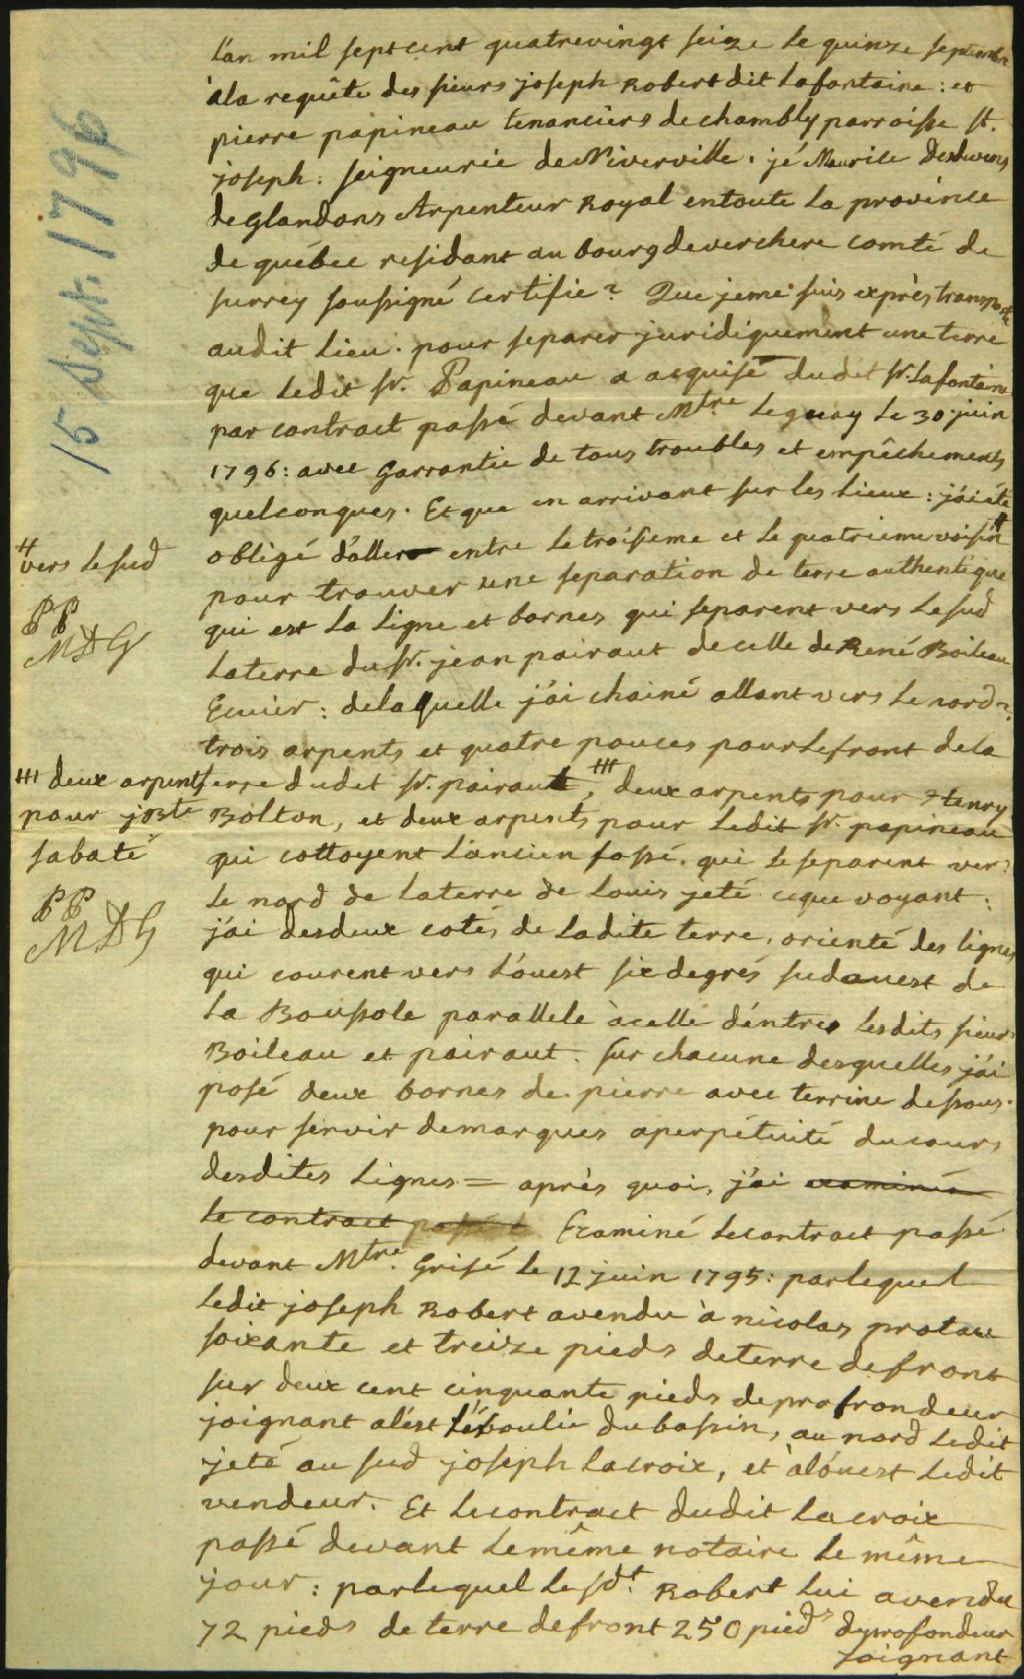 15 Sept. 1796
L'an mil sept cent quatrevingt seize le quinze septembre
à la requête des sieurs joseph Robert dit Lafontaine : et
pierre papineau tenanciers de chambly parroisse st.
joseph : seigneurie de Niverville . jé Maurile
deglandons Arpenteur Royal en toute La province
de québec residant au bourg de verchere comté de
surrey soussigné certifie ? Que je me suis exprès transporté
audit lieu . pour separer juridiquement une terre
que ledit sr. Papineau a acquise dudit sr. Lafontaine
par contract passé devant Mtre Leguay le 30 juin
1796 : avec Garrantie de tous troubles et empêchements
quelconques . Et que en arrivant sur les lieux : j'ai été
obligé d'aller entre le troisieme et le quatrieme voisin #
# vers le sud
PP
MDG
pour trouver une separation de terre authentique
qui est la ligne et bornes qui separent vers le sud
la terre du sr. jean pairaut de celle de René Boileau
Ecuier : de laquelle j'ai chainé allant vers le nord
trois arpents et quatre pouces pour le front de la
terre dudit sr. pairaut, ### deux arpents pour Henry
### deux arpents
pour jBte
sabaté
PP
MDG
Bolton, et deux arpents pour ledit sr. papineau
qui cottoyent l'ancien fossé . qui le separent vers
le nord de la terre de Louis jeté ceque voyant :
j'ai des deux cotés de ladite terre, orienté des lignes
qui courent vers l'ouest six degrés sud ouest de
la Boussole parallele à celle d'entre lesdits sieurs
Boileau et pairaut . sur chacune desquelles j'ai
posé deux bornes de pierre avec terrine dessous .
pour servir de marques a perpétuité du cours
desdites lignes = après quoi, j'ai examiné
le contract passé Examiné le contract passé
devant Mtre. Grisé le 12 juin 1795 : par lequel
ledit joseph Robert a vendu à nicolas protau
soixante et treize pieds de terre de front
sur deux cent cinquante pieds de profrondeur
joignant a l'est l'éboulie du bassin, au nord ledit
jeté au sud joseph lacroix, et à l'óuest ledit
vendeur. Et le contract dudit lacroix
passé devant le même notaire le même
jour : par lequel le sdt. Robert lui a vendu
72 pieds de terre de front 250 pieds de profondeur
joignant